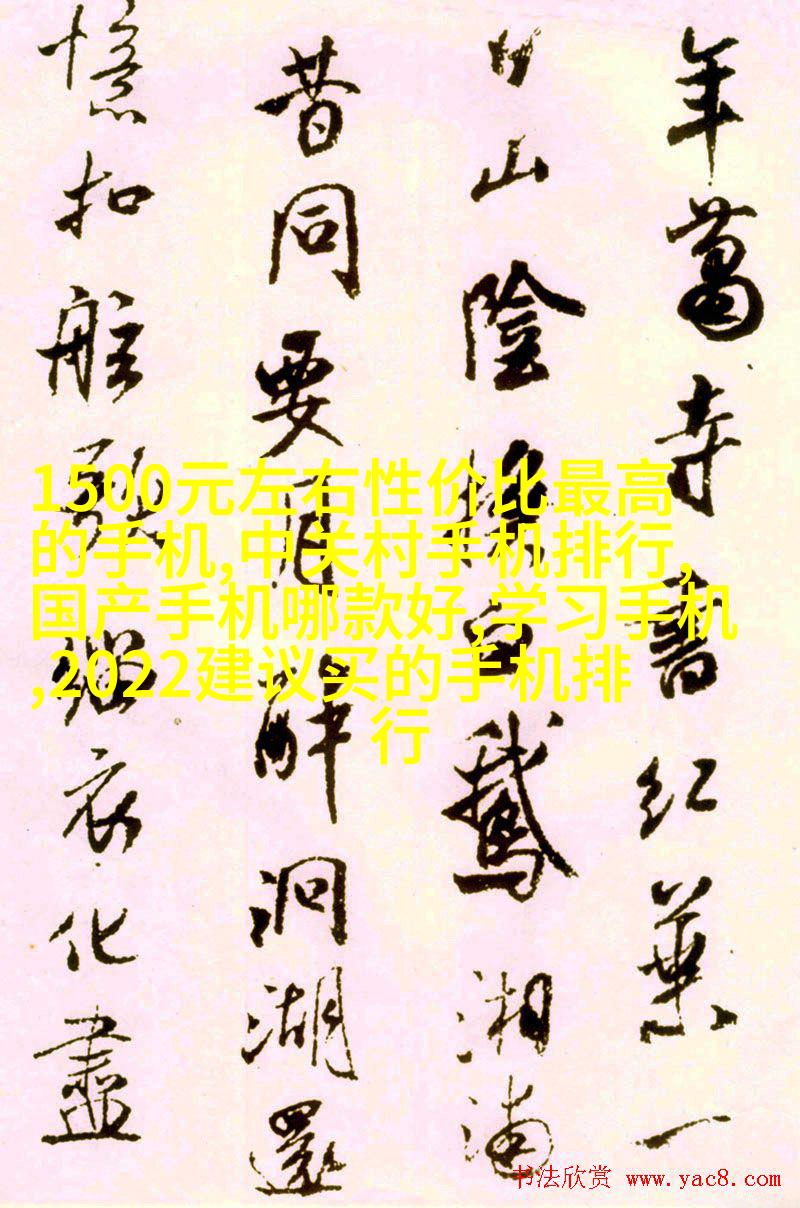 年蕭寺書紅葉一
日山陰換白鵝湘浦
昔同要月醉洞湖還
憶扣舷歌緇衣化盡
1500元左右性价比最高
的手机,中关村手机排行,
国产手机哪款好,学习手机
,2022建议买的手机排
行
书法欣赏 www.yac8.com